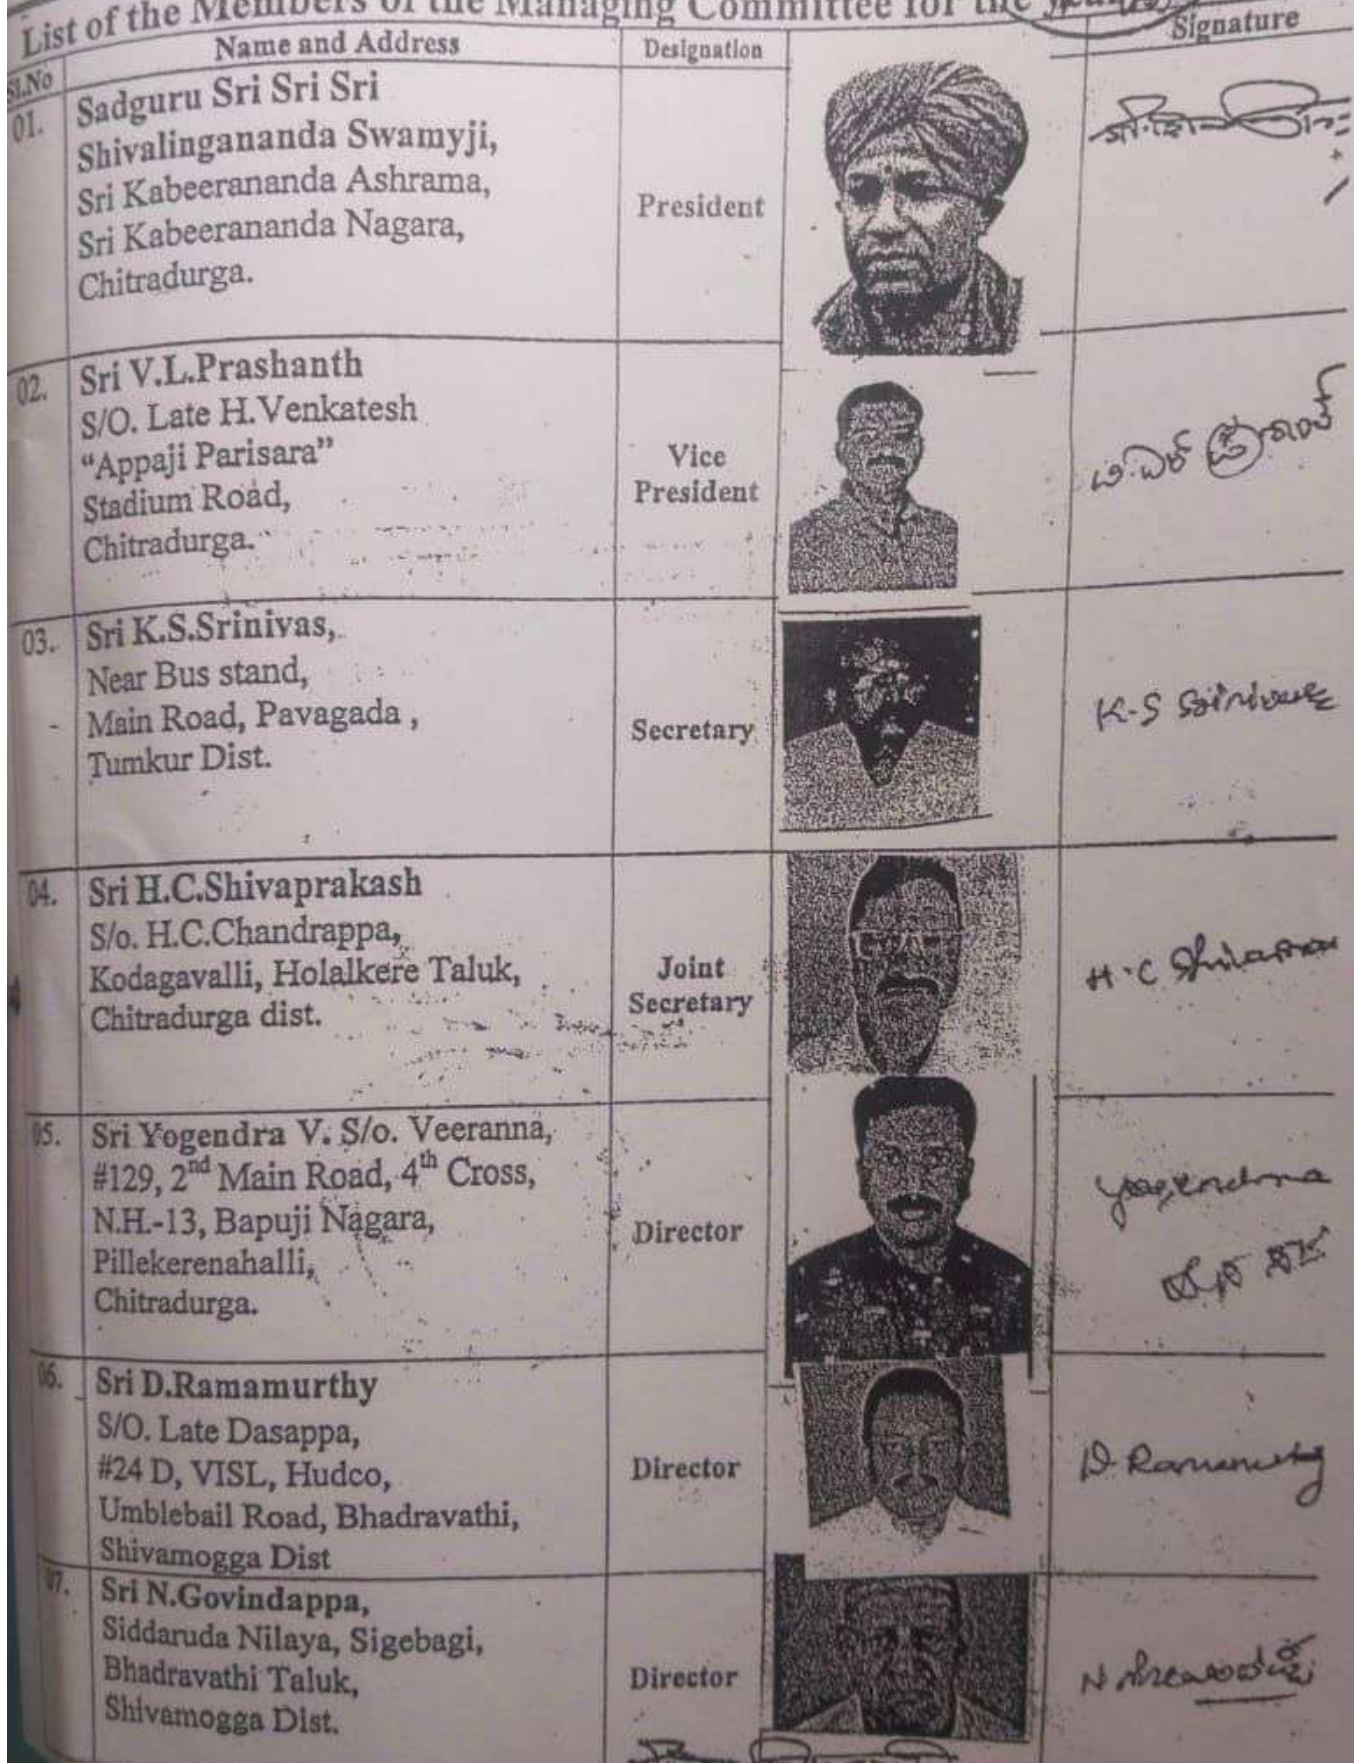 List of the Members of the Managing Committee for the
Sl.No
Name and Address
Designation
Signature
01.
Sadguru Sri Sri Sri
Shivalingananda Swamyji,
Sri Kabeerananda Ashrama,
Sri Kabeerananda Nagara,
Chitradurga.
President
02.
Sri V.L.Prashanth
S/O. Late H.Venkatesh
“Appaji Parisara”
Stadium Road,
Chitradurga.
Vice
President
ವಿ.ಎಲ್ ಪ್ರಶಾಂತ್
03.
Sri K.S.Srinivas,
Near Bus stand,
Main Road, Pavagada ,
Tumkur Dist.
Secretary
K.S
04.
Sri H.C.Shivaprakash
S/o. H.C.Chandrappa,
Kodagavalli, Holalkere Taluk,
Chitradurga dist.
Joint
Secretary
H.C
05.
Sri Yogendra V. S/o. Veeranna,
#129, 2nd Main Road, 4th Cross,
N.H.-13, Bapuji Nagara,
Pillekerenahalli,
Chitradurga.
Director
Yogendra
06.
Sri D.Ramamurthy
S/O. Late Dasappa,
#24 D, VISL, Hudco,
Umblebail Road, Bhadravathi,
Shivamogga Dist
Director
D. Ramamurthy
07.
Sri N.Govindappa,
Siddaruda Nilaya, Sigebagi,
Bhadravathi Taluk,
Shivamogga Dist.
Director
N ಗೋವಿಂದಪ್ಪ